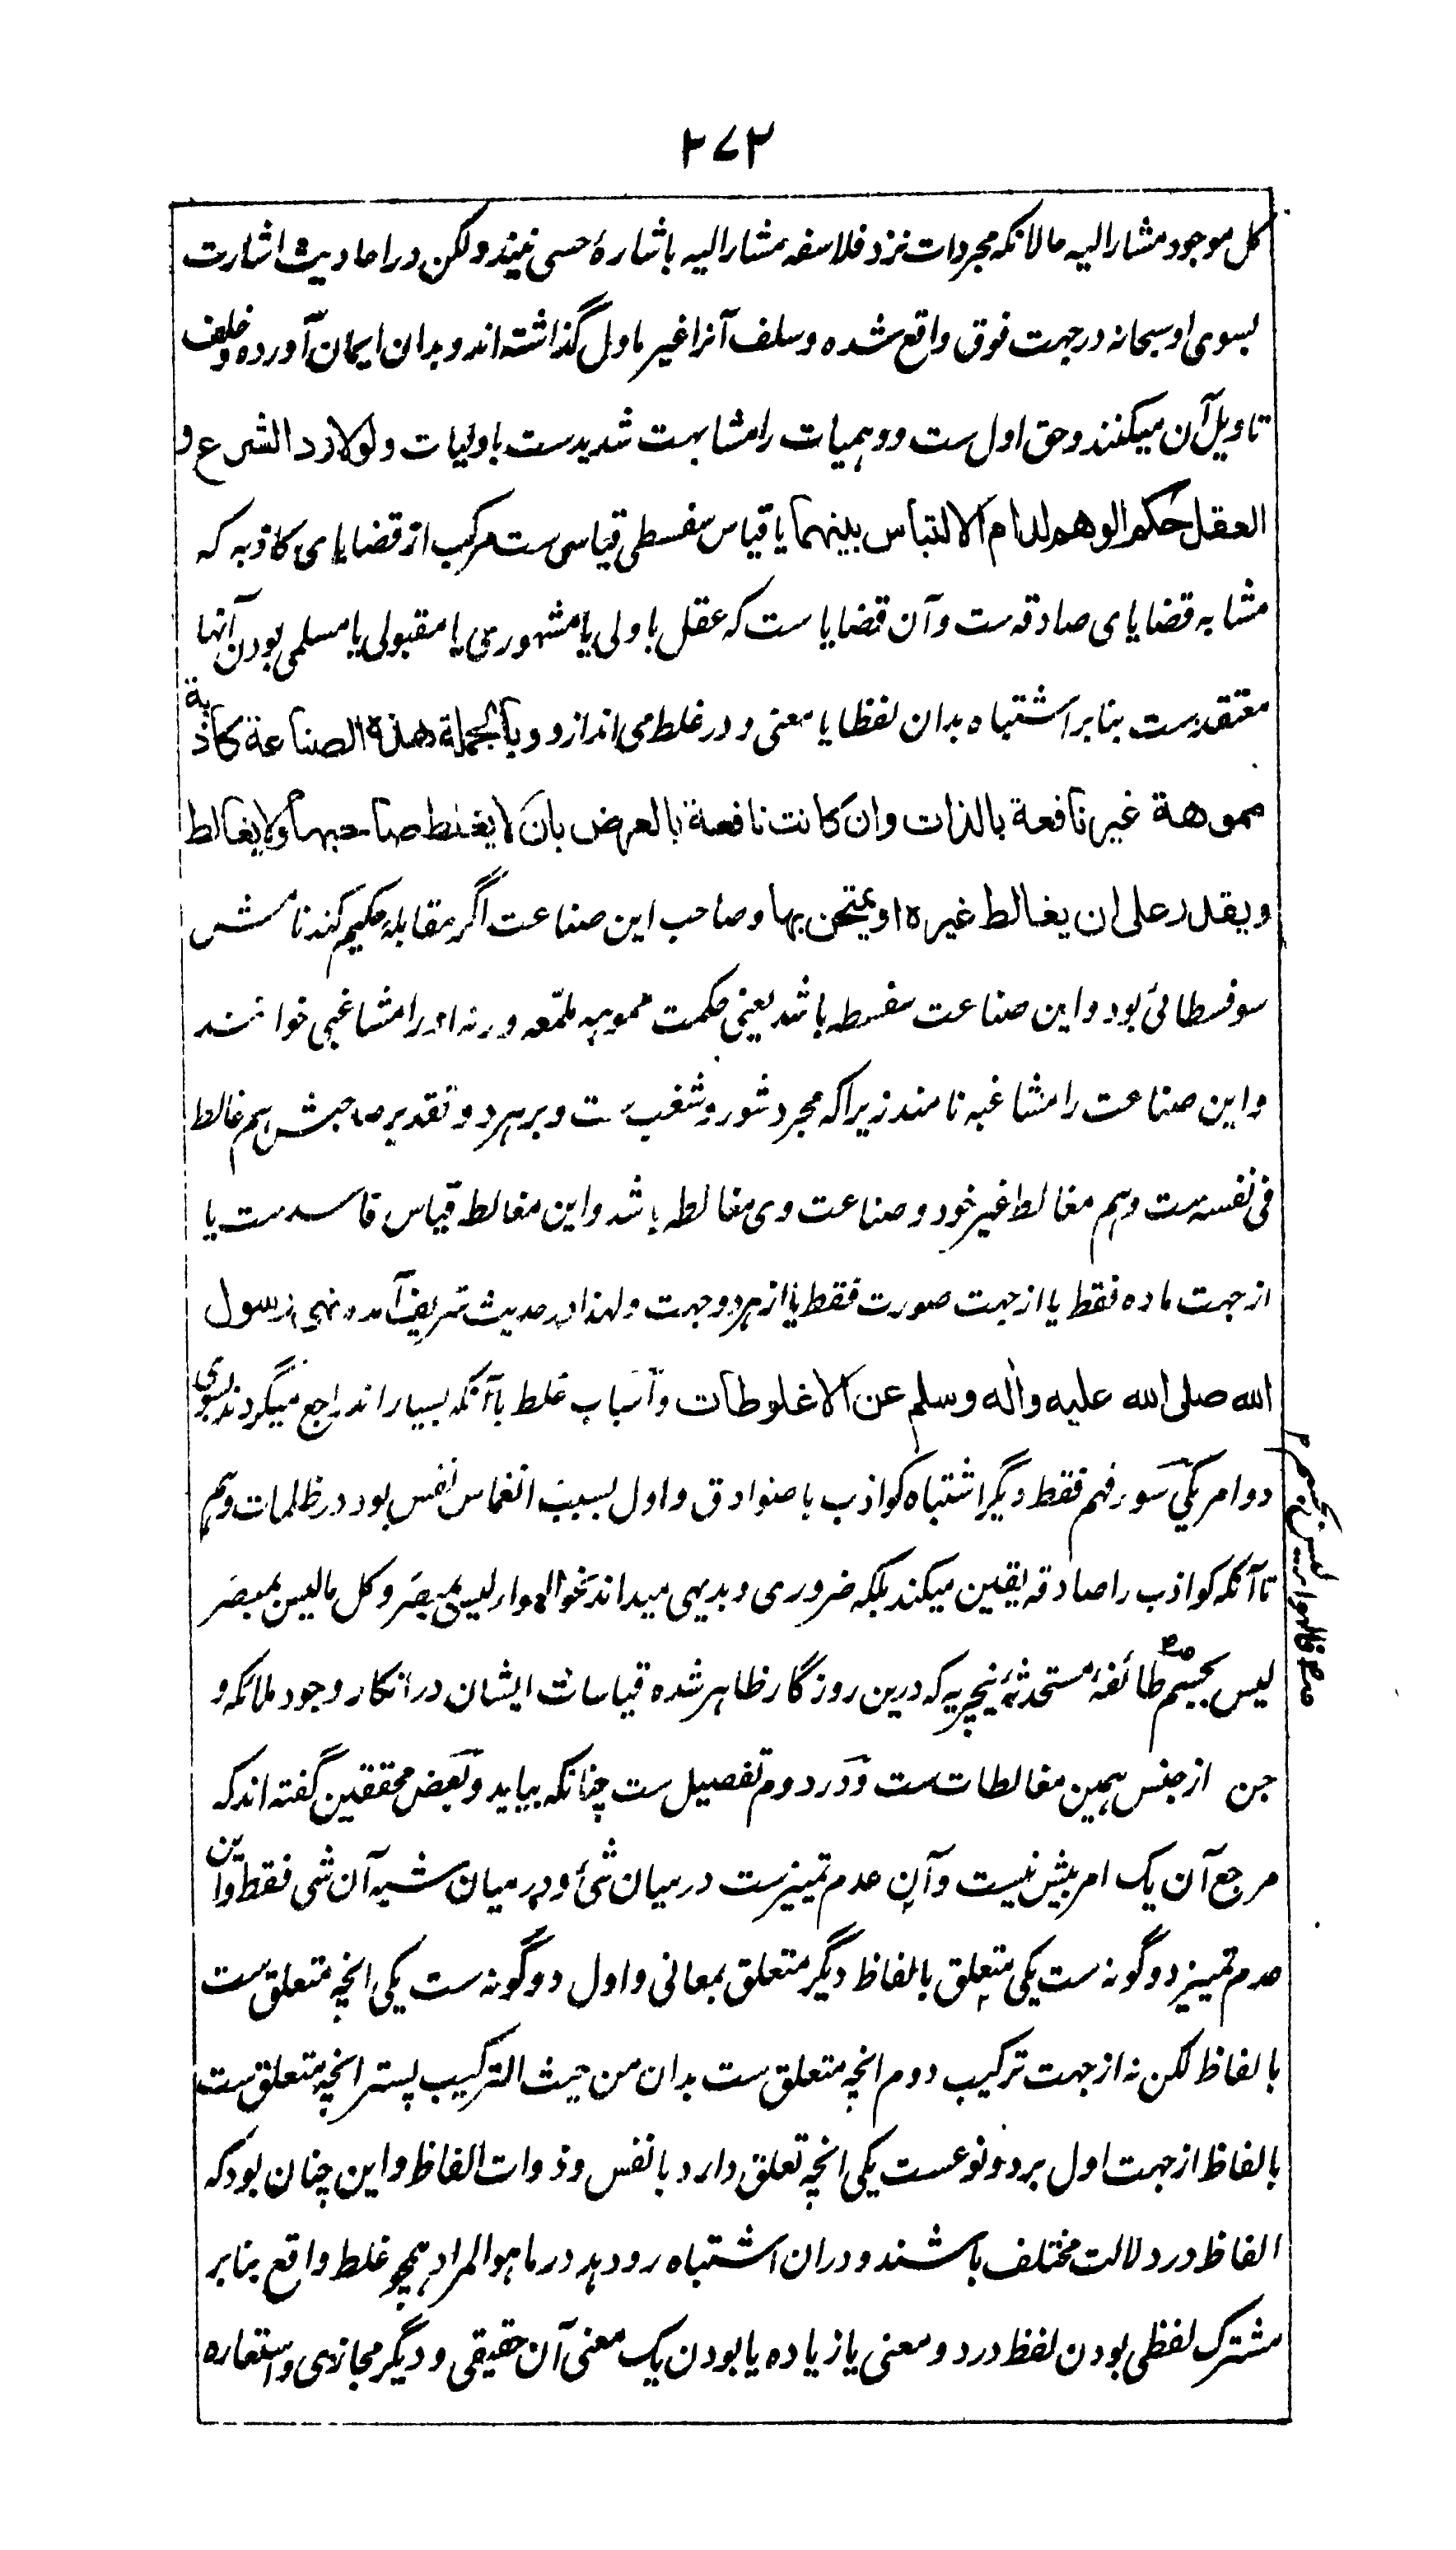 ۲۷۲
کل موجود مشار الیه حالانکه مجردات نزد فلاسفه مشار الیه باشارهٔ حسی نیند ولکن در احادیث اشارت
بسوی او سبحانه در جهت فوق واقع شده و سلف آنرا غیر ماول گذاشته اند و بدان ایمان آورده و خلف
تاویل آن میکنند و حق اول ست و وهمیات را مشابهت شدید ست باولیات ولولا رد الشرع و
العقل حکم الوهم لدام الالتباس بینهما یا قیاس سفسطی قیاسی ست مرکب از قضایای کاذبه که
مشابه قضایای صادقه ست و آن قضایا ست که عقل باولی یا مشهوری یا مقبولی یا مسلمی بودن آنها
معتقد ست بنابر اشتباه بدان لفظا یا معنی و در غلط می اندازد وبالجملة هذه الصناعة کاذبة
مموهة غیر نافعة بالذات وان کانت نافعة بالعرض بان لا یغلط صاحبها ولا یغالط
ویقدر علی ان یغالط غیره او یمتحن بها و صاحب این صناعت اگر مقابله حکیم کند نامش
سوفسطائی بود و این صناعت سفسطه باشد یعنی حکمت مموهه ملمّعه ورنه او را مشاغبی خوانند
و این صناعت را مشاغبه نامند زیرا که مجرد شور و شغب ست و بر هر دو تقدیر صاحبش هم غالط
فی نفسه ست و هم مغالط غیر خود و صناعت وی مغالطه باشد و این مغالطه قیاس فاسد ست یا
از جهت ماده فقط یا از جهت صورت فقط یا از هر دو جهت ولهذا در حدیث شریف آمده نهی رسول
الله صلی الله علیه واٰله وسلم عن الاغلوطات و اسباب غلط باآنکه بسیار اند راجع میگردند بسوی
دو امر یکی سوء فهم فقط دیگر اشتباه کواذب با صوادق و اول بسبب انغماس نفس بود در ظلمات وهم
تا آنکه کواذب را صادقه یقین میکند بلکه ضروری و بدیهی میداند نحو الهواء لیس بمبصَر وکل ما لیس بمبصَر
لیس بجسم طائفهٔ مستحدثهٔ نیچریه که درین روزگار ظاهر شده قیاسات ایشان در انکار وجود ملائکه و
صح فالهواء لیس بجسم
جن از جنس همین مغالطات ست و در دوم تفصیل ست چنانکه بیاید و بعض محققین گفته اند که
مرجع آن یک امر بیش نیست و آن عدم تمییز ست در میان شئ و در میان شبه آن شی فقط و این
عدم تمییز دو گونه ست یکی متعلق بالفاظ دیگر متعلق بمعانی و اول دو گونه ست یکی انچه متعلق ست
بالفاظ لکن نه از جهت ترکیب دوم انچه متعلق ست بدان من حیث الترکیب پستر انچه متعلق ست
بالفاظ از جهت اول بر دو نوعست یکی انچه تعلق دارد بانفس و ذوات الفاظ و این چنان بود که
الفاظ در دلالت مختلف باشند و دران اشتباه رو دهد در ما هو المراد همچو غلط واقع بنابر
مشترک لفظی بودن لفظ در دو معنی یا زیاده یا بودن یک معنی آن حقیقی و دیگر مجازی و استعاره